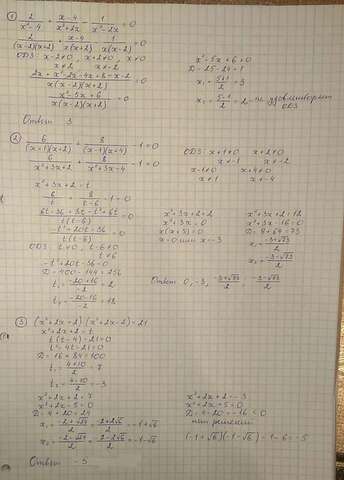 ① 2/(x²-4) + (x-4)/(x²+2x) - 1/(x²-2x) = 0
2/((x-2)(x+2)) + (x-4)/(x(x+2)) - 1/(x(x-2)) = 0
ОДЗ: x-2≠0, x+2≠0, x≠0
x≠2 x≠-2
(2x+x²-2x-4x+8-x-2)/(x(x-2)(x+2)) = 0
(x²-5x+6)/(x(x-2)(x+2)) = 0
x²-5x+6=0
D=25-24=1
x₁=(5+1)/2=3
x₂=(5-1)/2=2 - не удовлетворяет ОДЗ
Ответ: 3
② 6/((x+1)(x+2)) + 8/((x-1)(x+4)) - 1=0
6/(x²+3x+2) + 8/(x²+3x-4) - 1=0
ОДЗ: x+1≠0 x+2≠0
x≠-1 x≠-2
x-1≠0 x+4≠0
x≠1 x≠-4
x²+3x+2=t
6/t + 8/(t-6) - 1=0
(6t-36+8t-t²+6t)/(t(t-6)) = 0
(-t²+20t-36)/(t(t-6)) = 0
ОДЗ: t≠0, t-6≠0
t≠6
-t²+20t-36=0
D=400-144=256
t₁=(-20+16)/-2=2
t₂=(-20-16)/-2=18
x²+3x+2=2
x²+3x=0
x(x+3)=0
x=0 или x=-3
x²+3x+2=18
x²+3x-16=0
D=9+64=73
x₁=(-3+√73)/2
x₂=(-3-√73)/2
Ответ: 0, -3, (-3+√73)/2, (-3-√73)/2
③ (x²+2x+2)(x²+2x-2)=21
x²+2x+2=t
t(t-4)-21=0
t²-4t-21=0
D=16+84=100
t₁=(4+10)/2=7
t₂=(4-10)/2=-3
x²+2x+2=7
x²+2x-5=0
D=4+20=24
x₁=(-2+√24)/2=(-2+2√6)/2=-1+√6
x₂=(-2-√24)/2=(-2-2√6)/2=-1-√6
x²+2x+2=-3
x²+2x+5=0
D=4-20=-16<0
нет решений
(-1+√6)(-1-√6)=1-6=-5
Ответ: -5